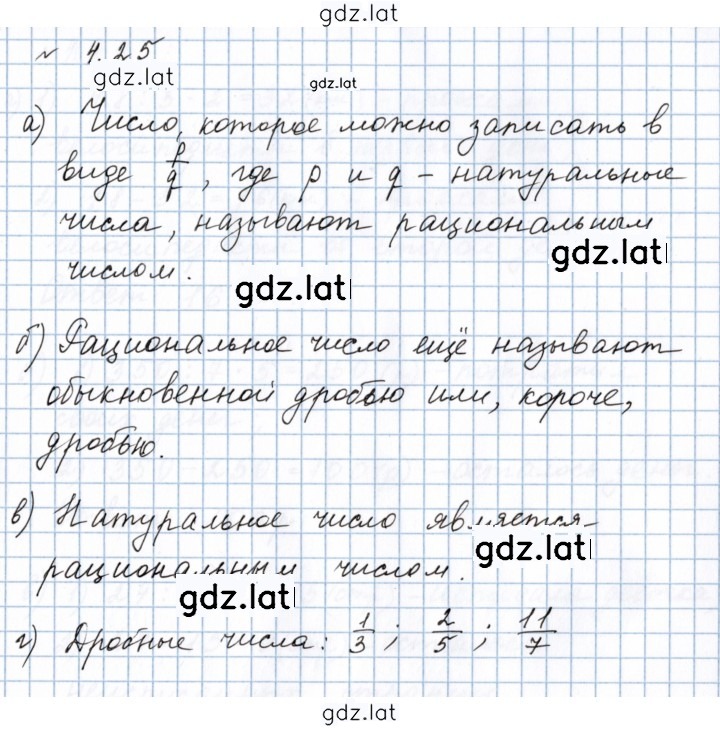 gdz.lat
№ 4.25
gdz.lat
gdz.lat
а) Число, которое можно записать в
виде p/q, где p и q – натуральные
числа, называют рациональным
gdz.lat
числом.
gdz.lat
б) Рациональное число ещё называют
обыкновенной дробью или, короче,
дробью.
в) Натуральное число является
gdz.lat
рациональным числом.
gdz.lat
г) Дробные числа: 1/3; 2/5; 11/7
gdz.lat